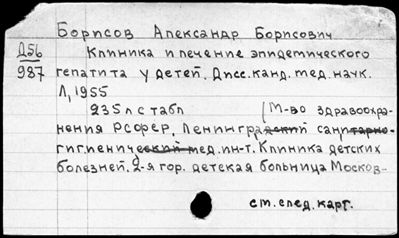 Борисов Александр Борисович
Д56
987
Клиника и лечение эпидемического
гепатита у детей. Дисс. канд. мед. наук.
Л, 1955
235 л с табл
[М-во здравоохра-
нения РСФСР, Ленинградский санитарно-
гигиенический мед. ин-т. Клиника детских
болезней. 2-я гор. детская больница Москов-
см. след. карт.